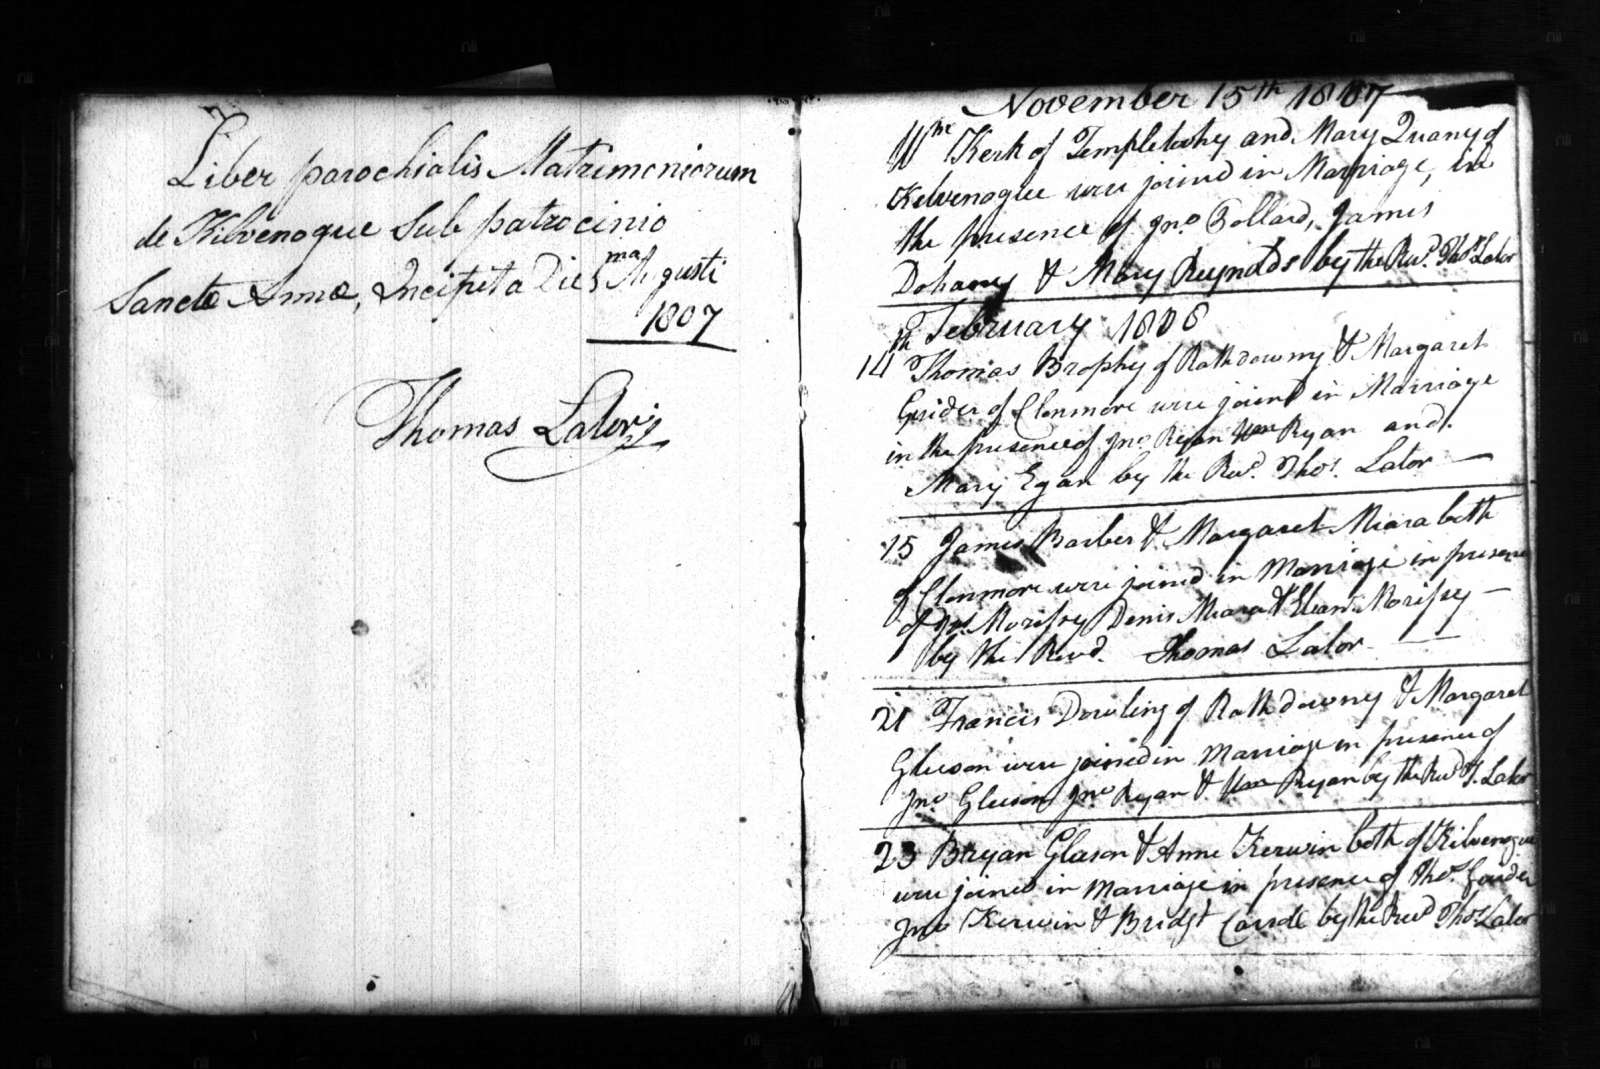 Liber parochialis Matrimoniorum
de Kilvenogue Sub patrocinio
Sanctæ Annæ, Incipit a Die 5ma Augusti
1807
Thomas Lalor
November 15th 1807
Wm Kerk of Templetohy and Mary Quany of
Kelvenogue were joined in Marriage, in
the presence of Jno. Bollard, James
Dohany & Mary Reynolds by the Revd. Thos Lalor
February 1808
14th Thomas Brophy of Rathdowny & Margaret
of Clonmore were joind in Marriage
in the presence of Jno Ryan Wm Ryan and
Mary Egan by the Revd. Thos. Lalor
15 James Barber & Margaret Meara both
of Clonmore were joined in Marriage in presence
of Morissy Denis Meara & Elean Morissy
by the Revd. Thomas Lalor
21 Francis Dowling of Rathdowny & Margaret
Gleeson were joined in Marriage in presence of
Jno Gleeson Jno Ryan & Wm Ryan by the Revd T. Lalor
23 Bryan Glason & Anne Kerwin both of Kilvenogue
were joined in Marriage in presence of Thos.
Jno Kerwin & Bridgt by the Revd Thos Lalor